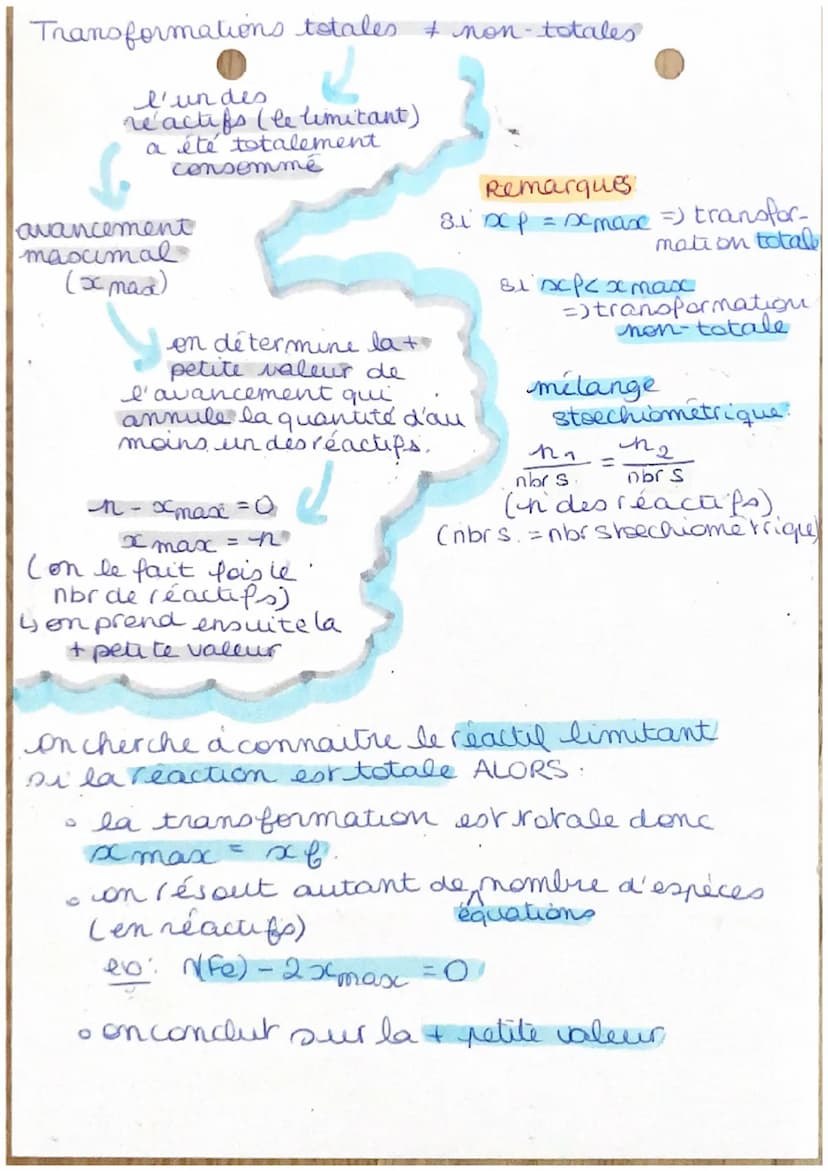 Transformations totales ≠ non-totales
l'un des
réactifs (le limitant)
a été totalement
consommé
avancement
maximal
(x max)
on détermine la +
petite valeur de
l'avancement qui
annule la quantité d'au
moins un des réactifs.
n - xmax = 0
x max = n
(on le fait fois le
nbr de réactifs)
↳ on prend ensuite la
+ petite valeur
Remarques
Si xf = xmax => transfor-
mation totale
Si xf < xmax
=> transformation
non-totale
mélange
stoechiométrique:
n1/nbr s. = n2/nbr s
(n des réactifs)
(nbr s. = nbr stoechiométrique)
on cherche à connaitre le réactif limitant
si la réaction est totale ALORS :
• la transformation est totale donc
x max = xf.
• on résout autant de nombre d'espèces
équations
(en réactifs)
ex: N(Fe) - 2xmax = 0
• on conclut sur la + petite valeur